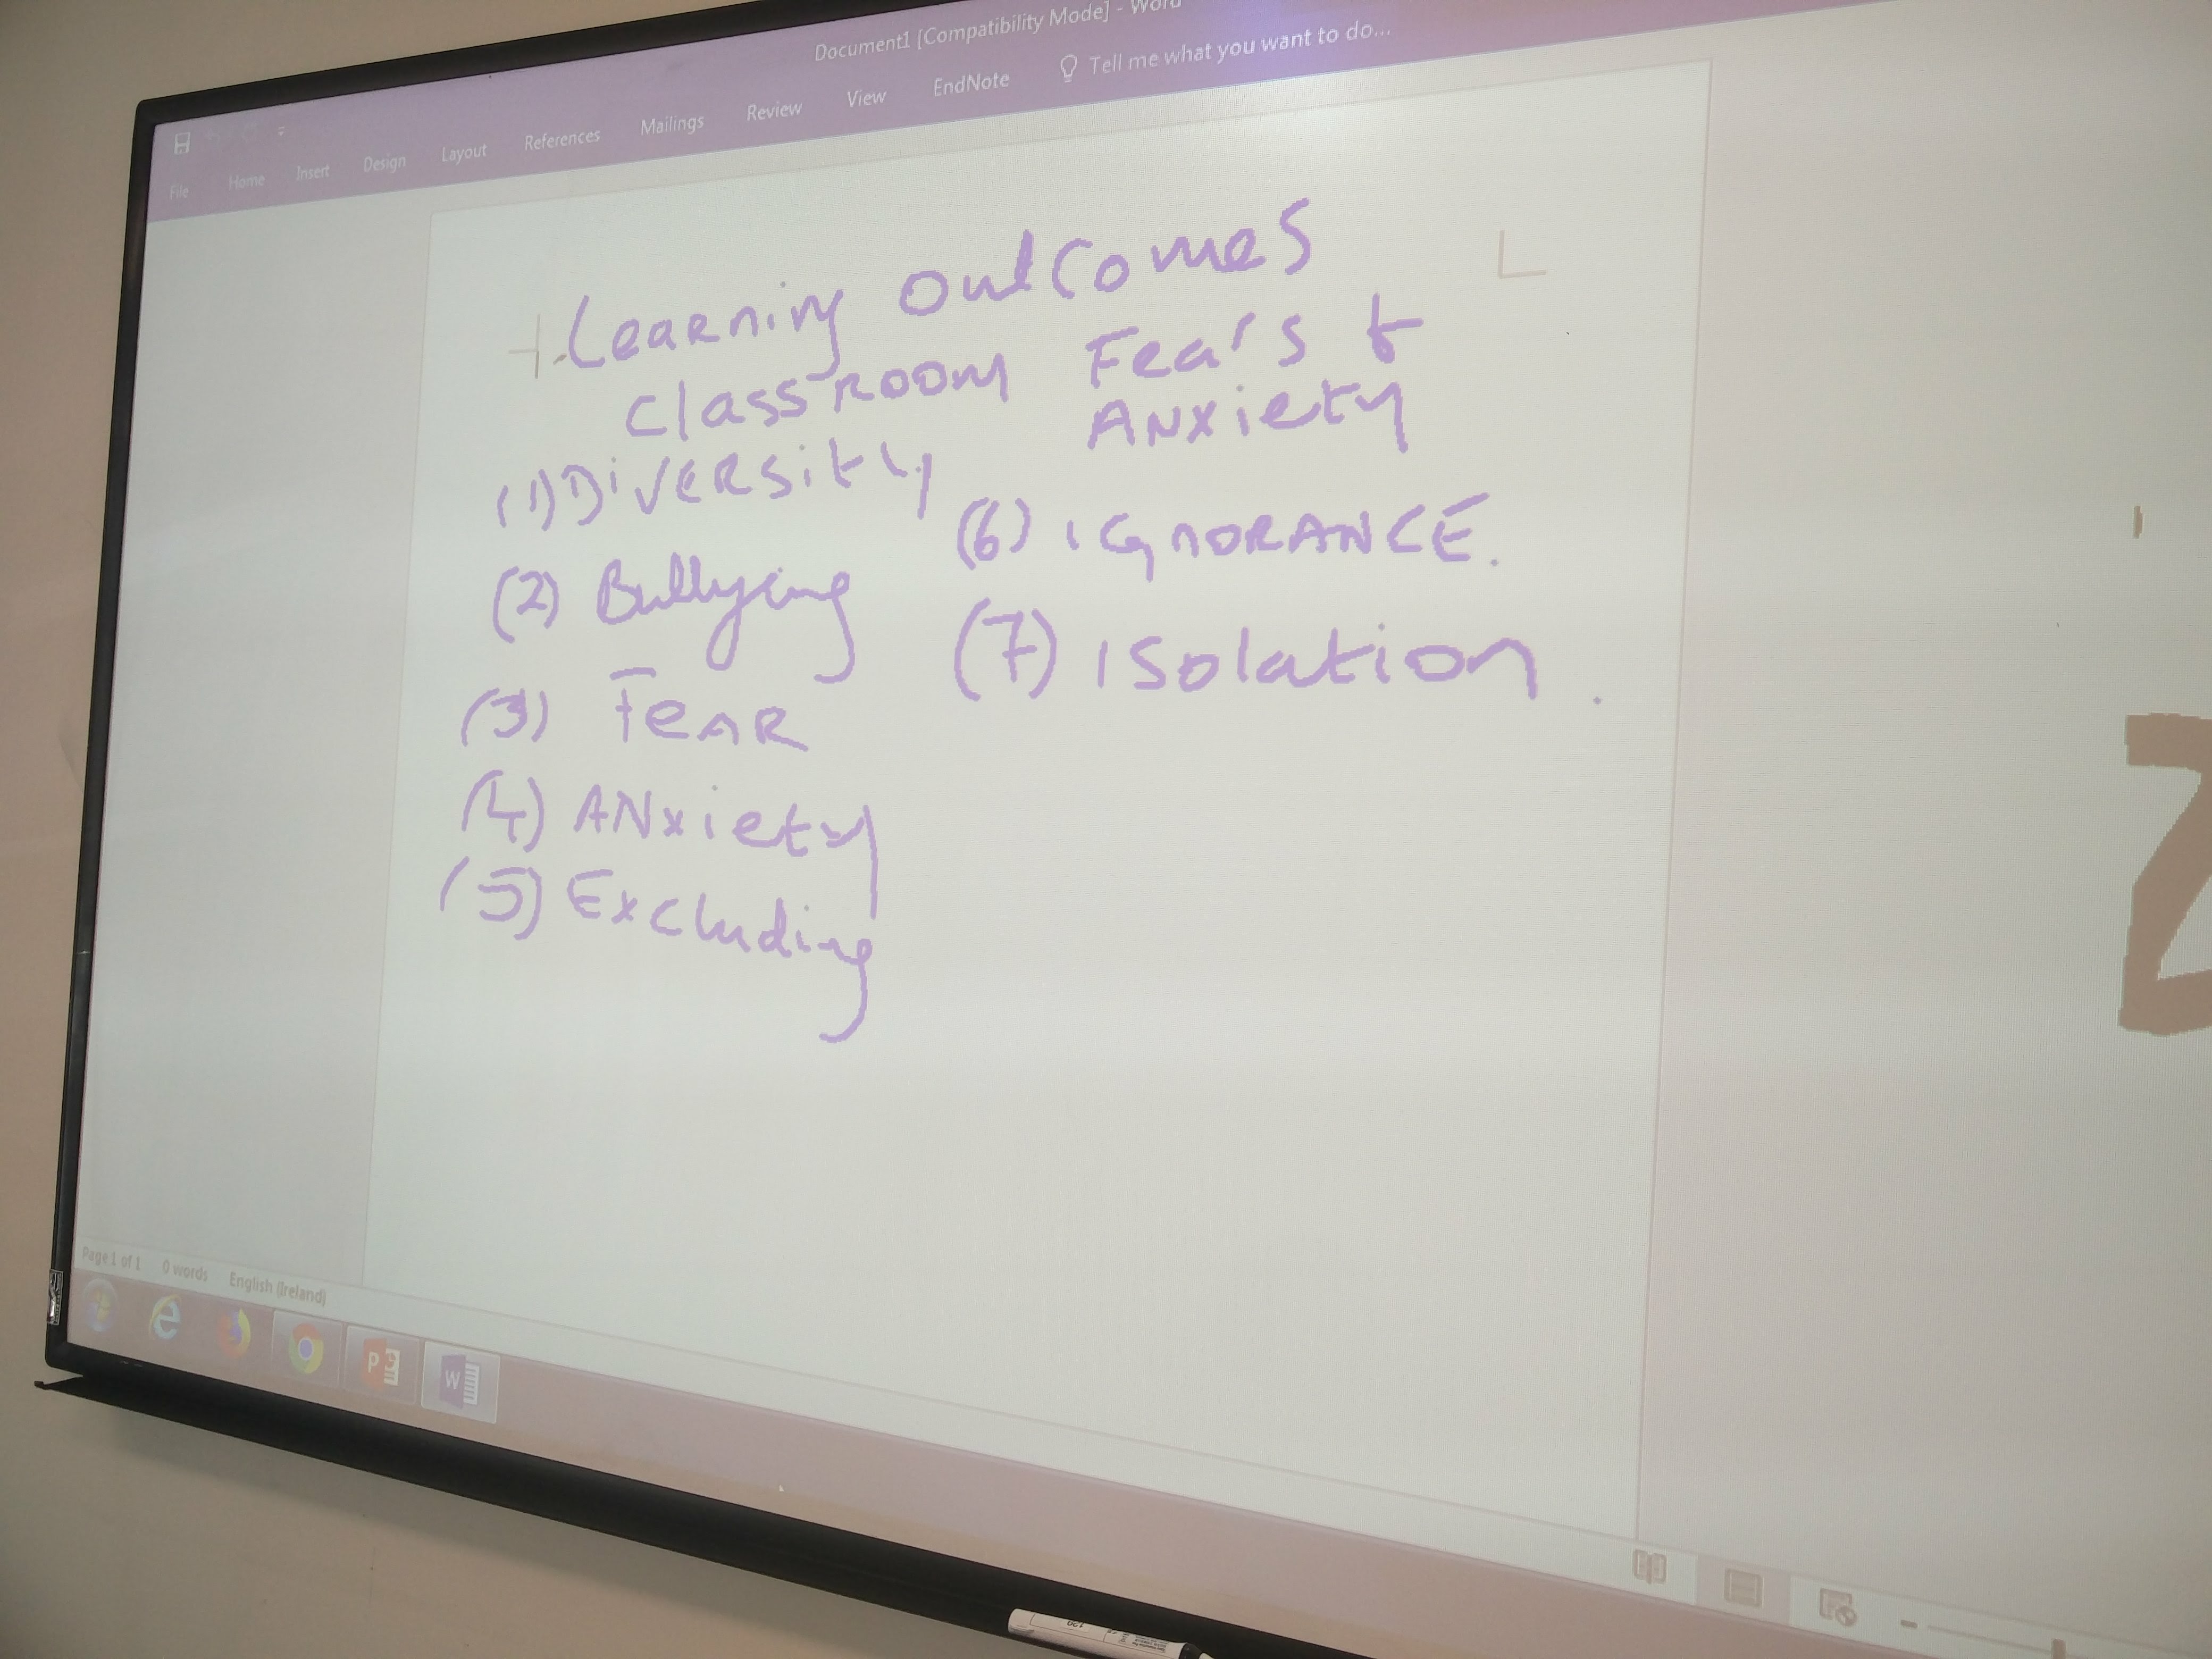 Document1 [Compatibility Mode] - Word
File Home Insert Design Layout References Mailings Review View EndNote Tell me what you want to do...
Learning outcomes
classroom Fears &
Anxiety
(1) Diversity
(2) Bullying
(3) Fear
(4) Anxiety
(5) Excluding
(6) IGNORANCE.
(7) Isolation.
Page 1 of 1 0 words English (Ireland)